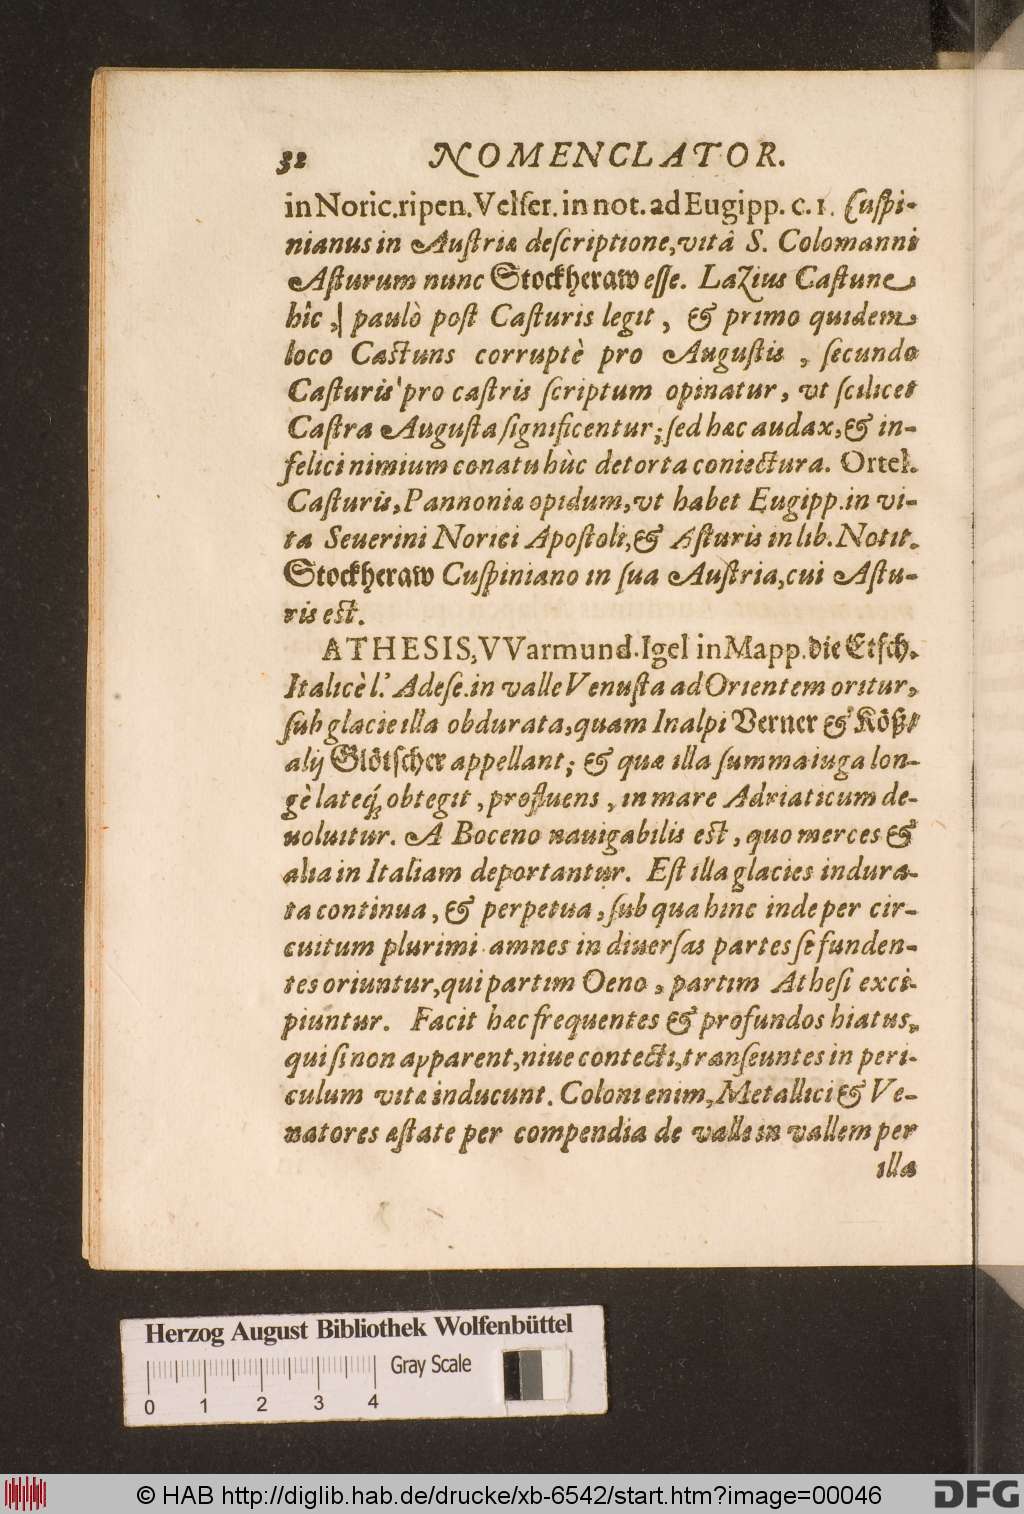 32 NOMENCLATOR.
in Noric. ripen. Velſer. in not. ad Eugipp. c. 1. Cuſpi-
nianus in Auſtriæ deſcriptione, vitâ S. Colomanni
Aſturum nunc Stockheraw eſſe. Lazius Caſtune
hîc, paulò poſt Caſturis legit, & primo quidem
loco Caſtuns corruptè pro Auguſtis, ſecundo
Caſturis pro caſtris ſcriptum opinatur, vt ſcilicet
Caſtra Auguſta ſignificentur; ſed hæc audax, & in-
felici nimium conatu hùc detorta coniectura. Ortel.
Caſturis, Pannoniæ opidum, vt habet Eugipp. in vi-
ta Seuerini Norici Apoſtoli, & Aſturis in lib. Notit.
Stockheraw Cuſpiniano in ſua Auſtria, cui Aſtu-
ris eſt.
ATHESIS, VVarmund. Igel in Mapp. die Etſch.
Italicè l' Adeſe. in valle Venuſta ad Orientem oritur,
ſub glacie illa obdurata, quam Inalpi Verner & Köß/
alij Glötſcher appellant; & quæ illa ſumma iuga lon-
gè lateq́; obtegit, profluens, in mare Adriaticum de-
uoluitur. A Boceno nauigabilis eſt, quo merces &
alia in Italiam deportantur. Eſt illa glacies indura-
ta continua, & perpetua, ſub qua hinc inde per cir-
cuitum plurimi amnes in diuerſas partes ſe funden-
tes oriuntur, qui partim Oeno, partim Atheſi exci-
piuntur. Facit hæc frequentes & profundos hiatus,
qui ſi non apparent, niue contecti, tranſeuntes in peri-
culum vitæ inducunt. Coloni enim, Metallici & Ve-
natores æſtate per compendia de valle in vallem per
illa
Herzog August Bibliothek Wolfenbüttel
Gray Scale
0 1 2 3 4
© HAB http://diglib.hab.de/drucke/xb-6542/start.htm?image=00046
DFG